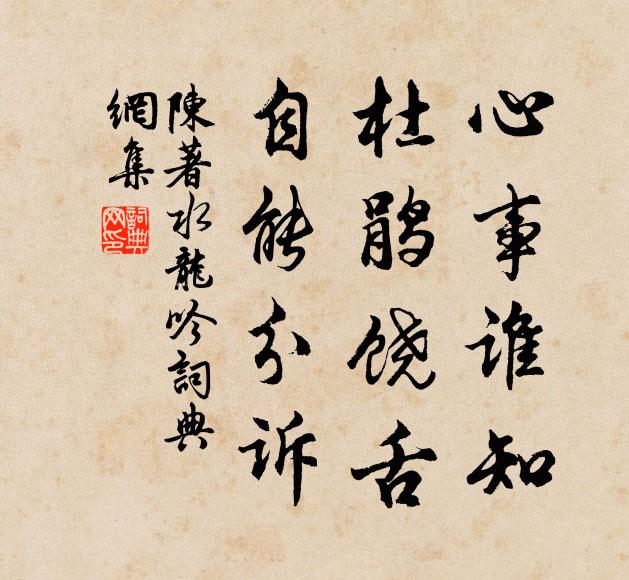 心事谁知
杜鹃饶舌
自能分诉
陳著水龍吟詞典
網集
詞典
网印